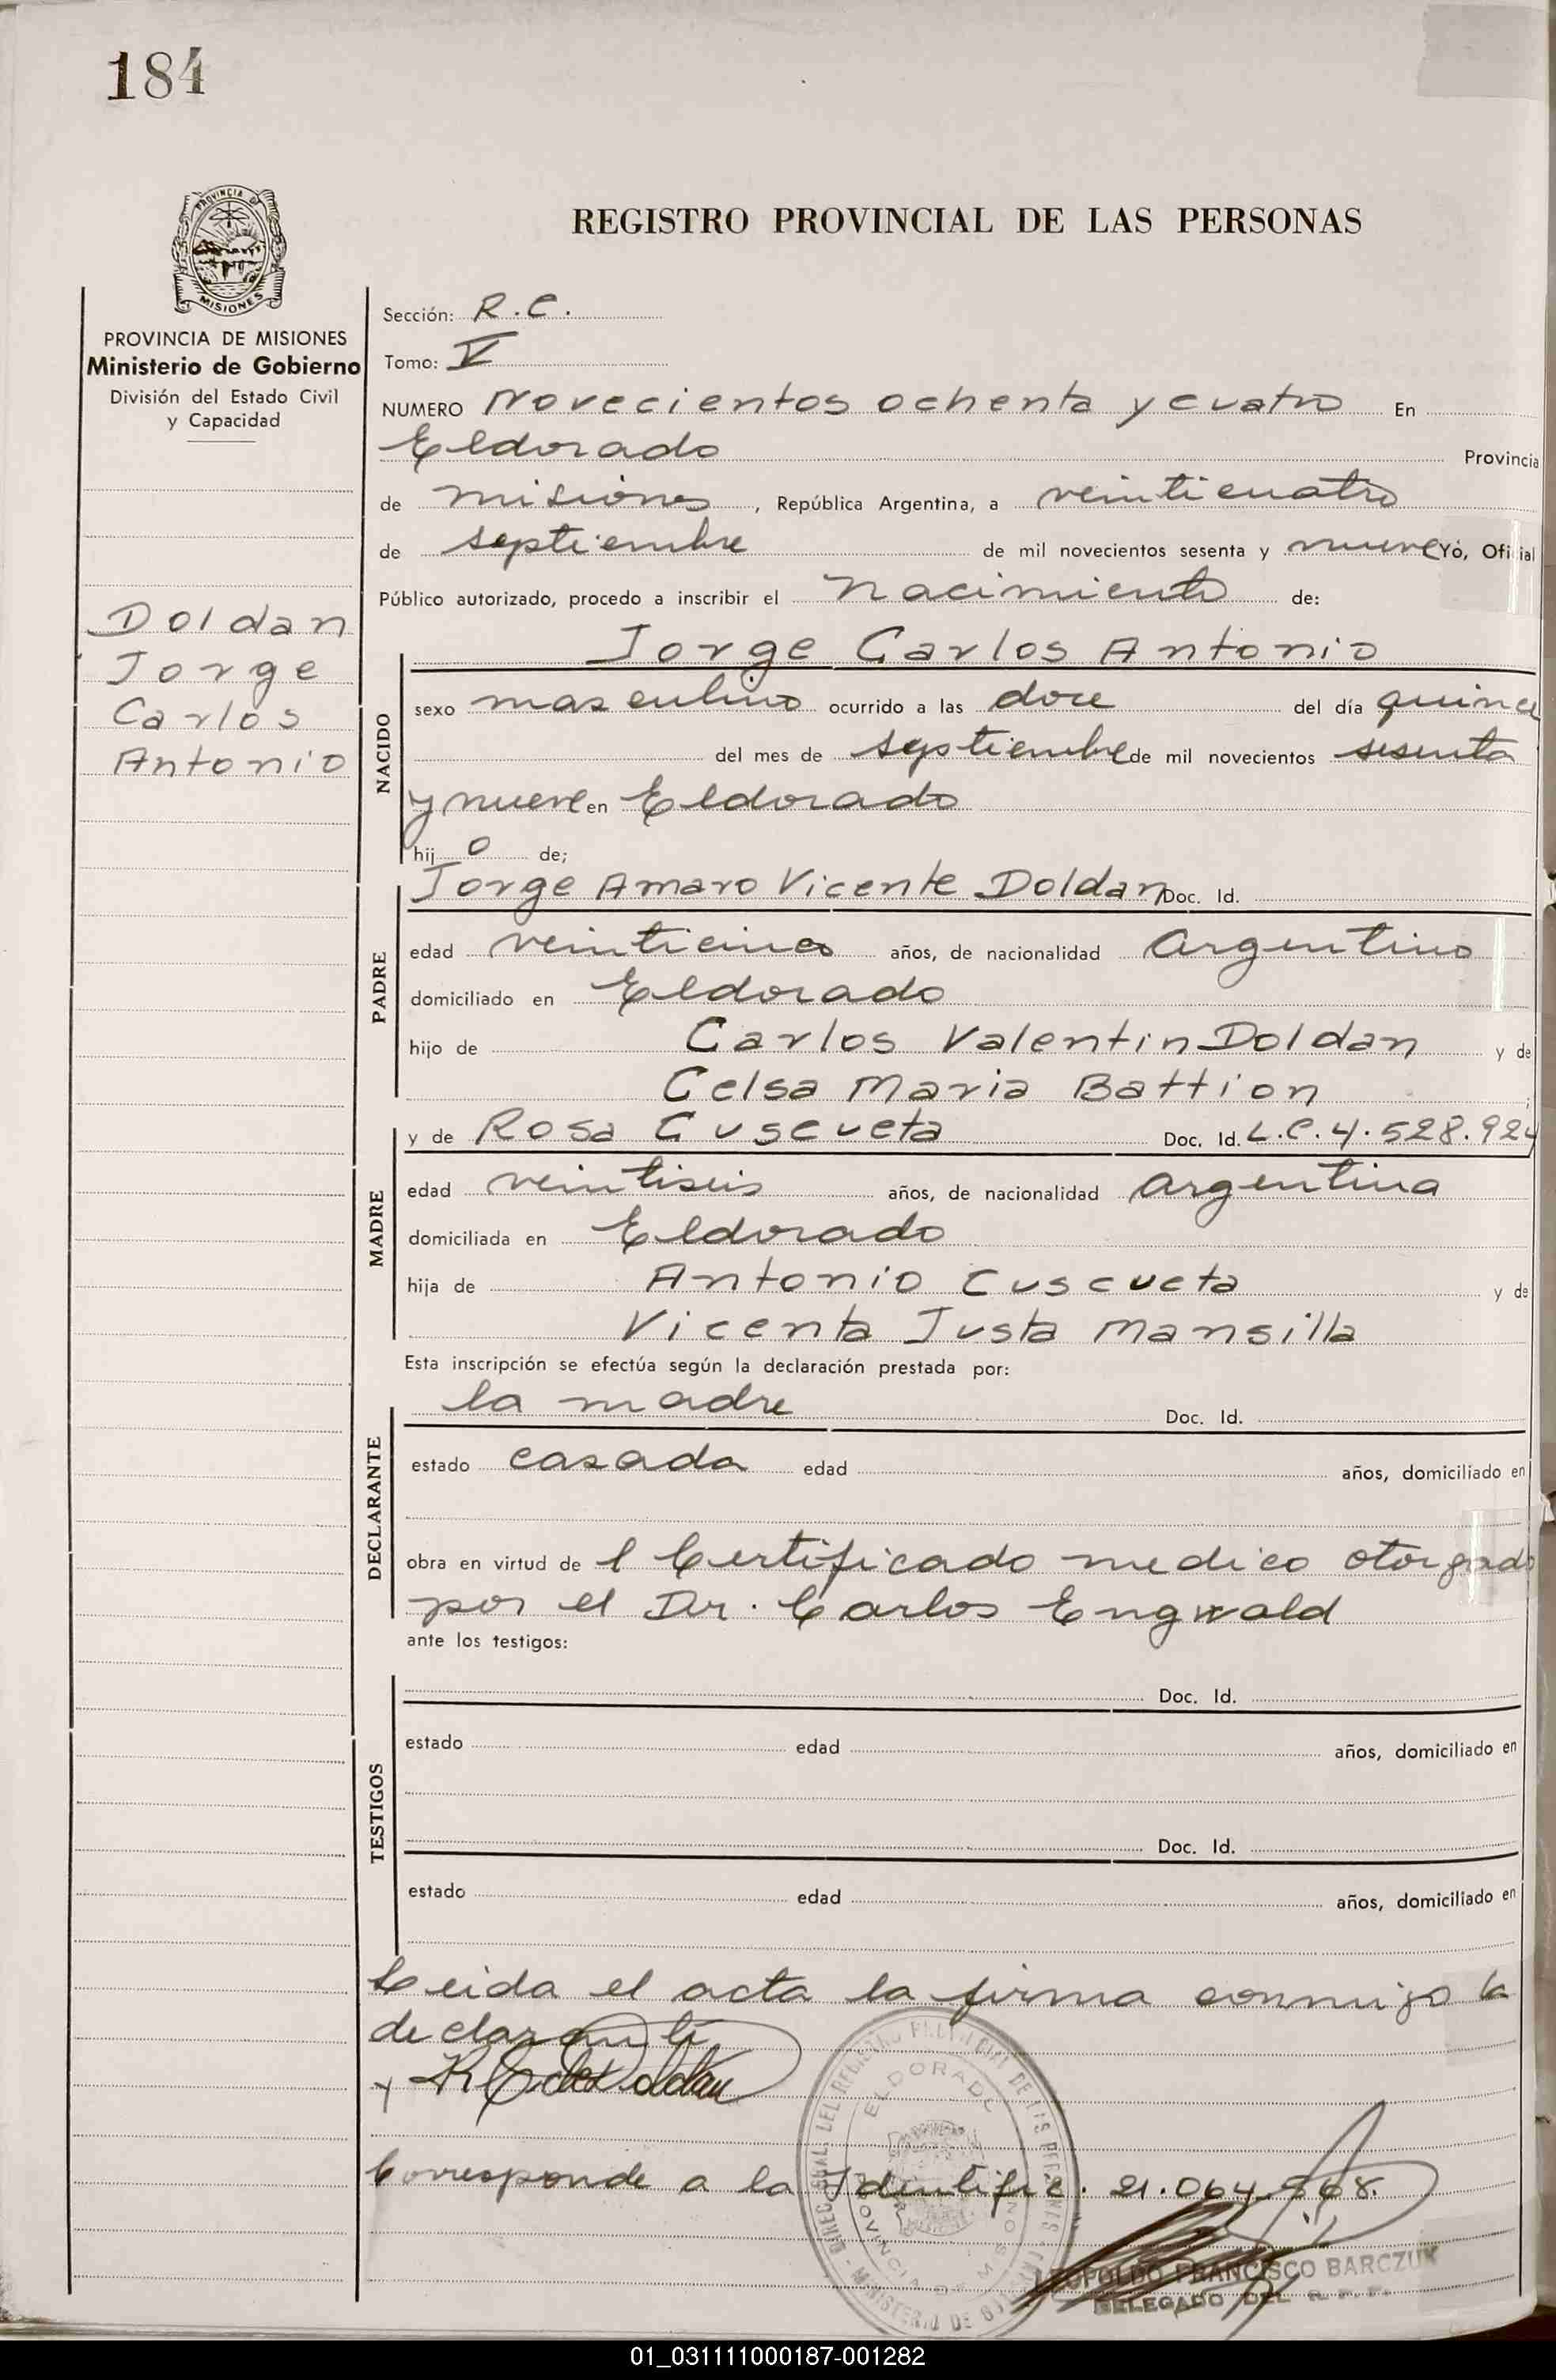 184
PROVINCIA DE
MISIONES
PROVINCIA DE MISIONES
Ministerio de Gobierno
División del Estado Civil
y Capacidad
Doldan
Jorge
Carlos
Antonio
REGISTRO PROVINCIAL DE LAS PERSONAS
Sección: R.C.
Tomo: V
NUMERO Novecientos ochenta y cuatro En
Eldorado Provincia
de misiones, República Argentina, a veinticuatro
de septiembre de mil novecientos sesenta y nueve Yo, Oficial
Público autorizado, procedo a inscribir el nacimiento de:
NACIDO
Jorge Carlos Antonio
sexo masculino ocurrido a las doce del día quince
del mes de septiembre de mil novecientos sesenta
y nueve en Eldorado
hij o de;
PADRE
Jorge Amaro Vicente Doldan Doc. Id.
edad veinticinco años, de nacionalidad argentino
domiciliado en Eldorado
hijo de Carlos Valentin Doldan y de
Celsa Maria Battion ;
MADRE
y de Rosa Cuscueta Doc. Id. L.C. 4.528.924
edad veintiseis años, de nacionalidad argentina
domiciliada en Eldorado
hija de Antonio Cuscueta y de
Vicenta Justa Mansilla
Esta inscripción se efectúa según la declaración prestada por:
DECLARANTE
la madre Doc. Id.
estado casada edad años, domiciliado en
obra en virtud de l Certificado medico otorgado
por el Dr. Carlos Engwald
ante los testigos:
TESTIGOS
Doc. Id.
estado edad años, domiciliado en
Doc. Id.
estado edad años, domiciliado en
Leida el acta la firma conmigo la
declarante
ELDORADO
PROVINCIA DE MISIONES
Corresponde a la Identific. 21.064.568.
LEOPOLDO FRANCISCO BARCZUK
DELEGADO DEL R.P.P.
01_031111000187-001282